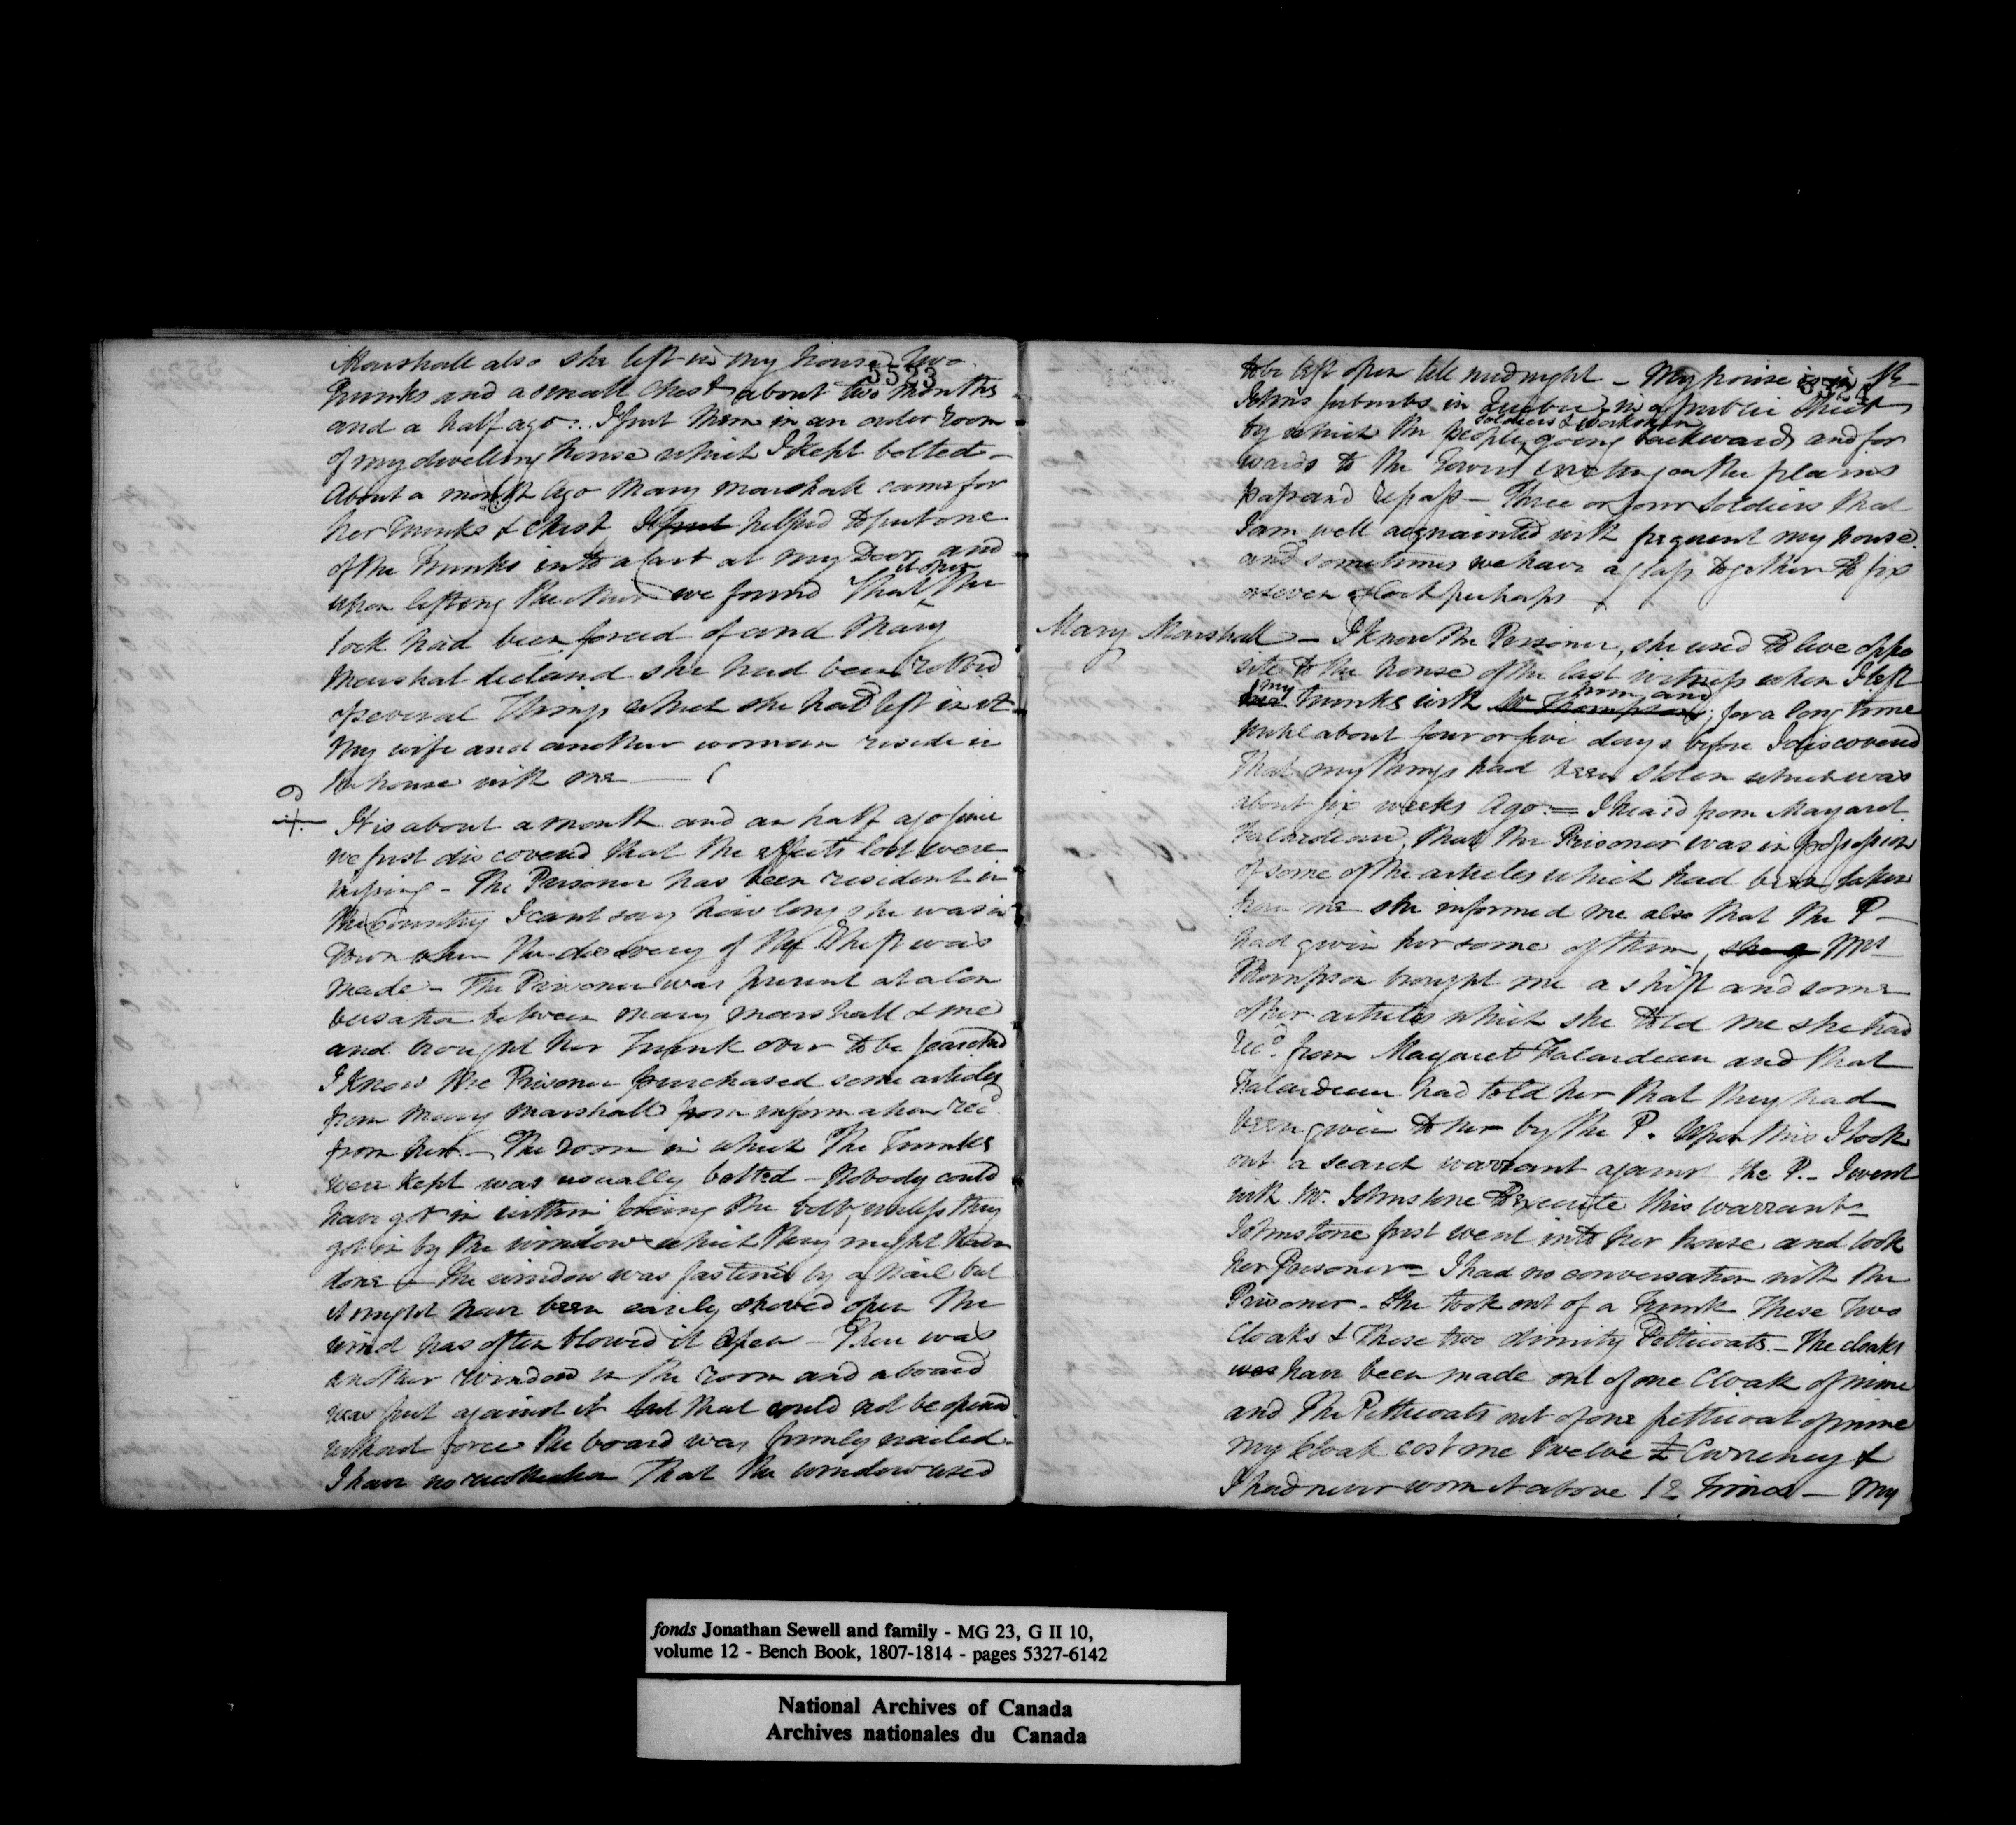 5523
Marshall also she left in my house two
Trunks and a small Chest about two Months
and a half ago. I put them in an outer room
of my dwelling house which I kept bolted –
About a month ago Mary Marshall came for
her Trunks & Chest I put helped to put one
of the Trunks into a Cart at my Door and
upon lifting the other we found that the
it open
lock had been forced of and Mary
Marshal declared she had been robbed
of several Things which she had left in it
My wife and another woman reside in
the house with me –
It is about a month and an half ago since
we first discovered that the effects lost were
missing – The Prisoner has been resident in
the Country I cant say how long she was in
Town when the discovery of the Theft was
made – The Prisoner was present at a Con
versation between Mary Marshall & me
and brought her Trunk over to be searched
I know the Prisoner purchased some articles
from Mary Marshall from information recd.
from her. – The room in which the Trunks
were kept was usually bolted – Nobody could
have got in without forcing the bolt, unless they
got in by the window which they might have
done – the window was fastened by a Nail but
it might have been easily shoved open The
wind has often blowed it open – There was
another window in the room and a board
was put against it but that could not be opened
without force the board was firmly nailed –
I have no recollection That the window used
5524
to be left open till midnight – My house is in St
Johns suburbs in Quebec in a public Street
soldiers & workmen
by which the people going backwards and for
wards to the Towers erecting on the plains
pass and repass – Three or four Soldiers that
I am well acquainted with frequent my house
and sometimes we have a glass together to six
or seven o'Clock perhaps –
Mary Marshall – I know the Prisoner, she used to live oppo
site to the house of the last witness when I left
my him and
her Trunks with Mr Thompson, for a long time
until about four or five days before I discovered
That my things had been stolen which was
about six weeks ago. = I heard from Margaret
Falardeau, that the Prisoner was in possession
of some of the articles which had been taken
from me she informed me also that the P –
had given her some of them, she g Mrs
Thompson brought me a shift and some
other articles which she told me she had
recd. from Margaret Falardeau and that
Falardeau had told her that they had
been given to her by the P. Upon this I took
out a search warrant against the P. – I went
with Mr. Johnstone to execute this warrant –
Johnstone first went into her house and took
her Prisoner – I had no conversation with the
Prisoner – She took out of a Trunk These Two
Cloaks & These two dimity Petticoats. – The cloaks
was have been made out of one Cloak of mine
and The Petticoats out of one petticoat of mine
My Cloak cost me twelve £ Currency &
I had never worn it above 12 Times – My
fonds Jonathan Sewell and family - MG 23, G II 10,
volume 12 - Bench Book, 1807-1814 - pages 5327-6142
National Archives of Canada
Archives nationales du Canada